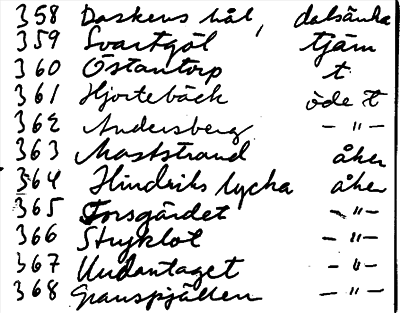 358 Daskens hål, dalsänka
359 Svartgöl tjärn
360 Östantorp t
361 Hjortebäck öde t
362 Andersberg - " -
363 Maststrand åker
364 Hindriks lycka åker
365 Torsgärdet - " -
366 Stryklot - " -
367 Undantaget - " -
368 - " -